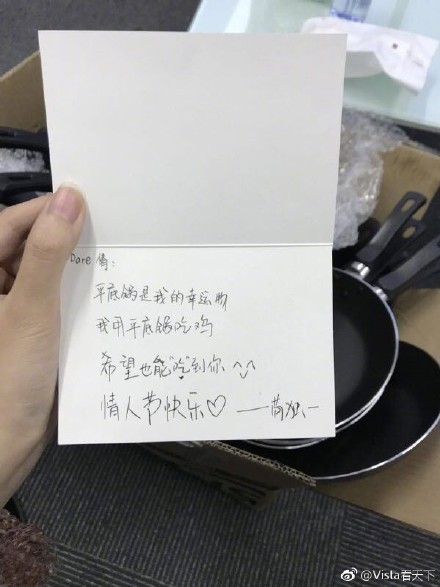 Dare 倩：
平底锅是我的幸运物
我用平底锅吃鸡
希望也能"吃"到你^_^
情人节快乐♡ ——苟独一
@Vista看天下